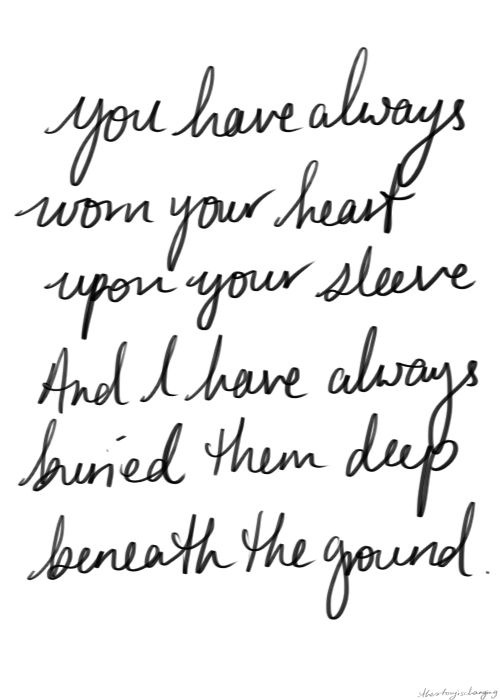 you have always
worn your heart
upon your sleeve
And I have always
buried them deep
beneath the ground.